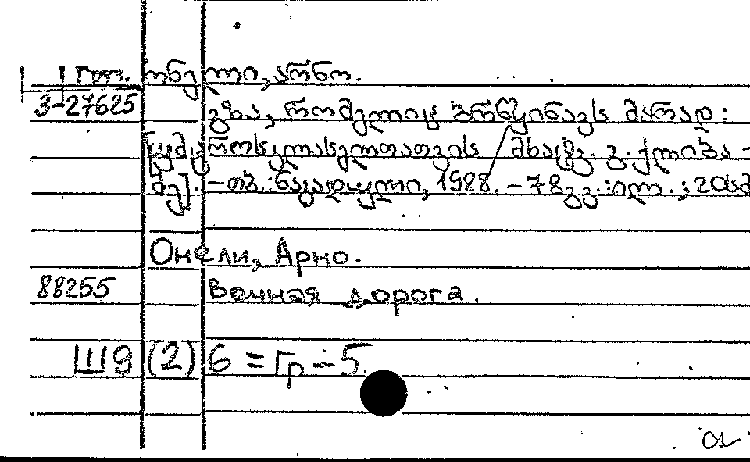 ონელი, არნო.
3-27625
გზა, რომელიც ბრწყინავს მარად:
მხატვ. გ. ქლიბა -
- თბ.: ნაკადული, 1988. - 78 გვ.: ილ.; 20სმ
Онели, Арно.
88255 Вечная дорога.
Ш9(2)6 = Гр - 5